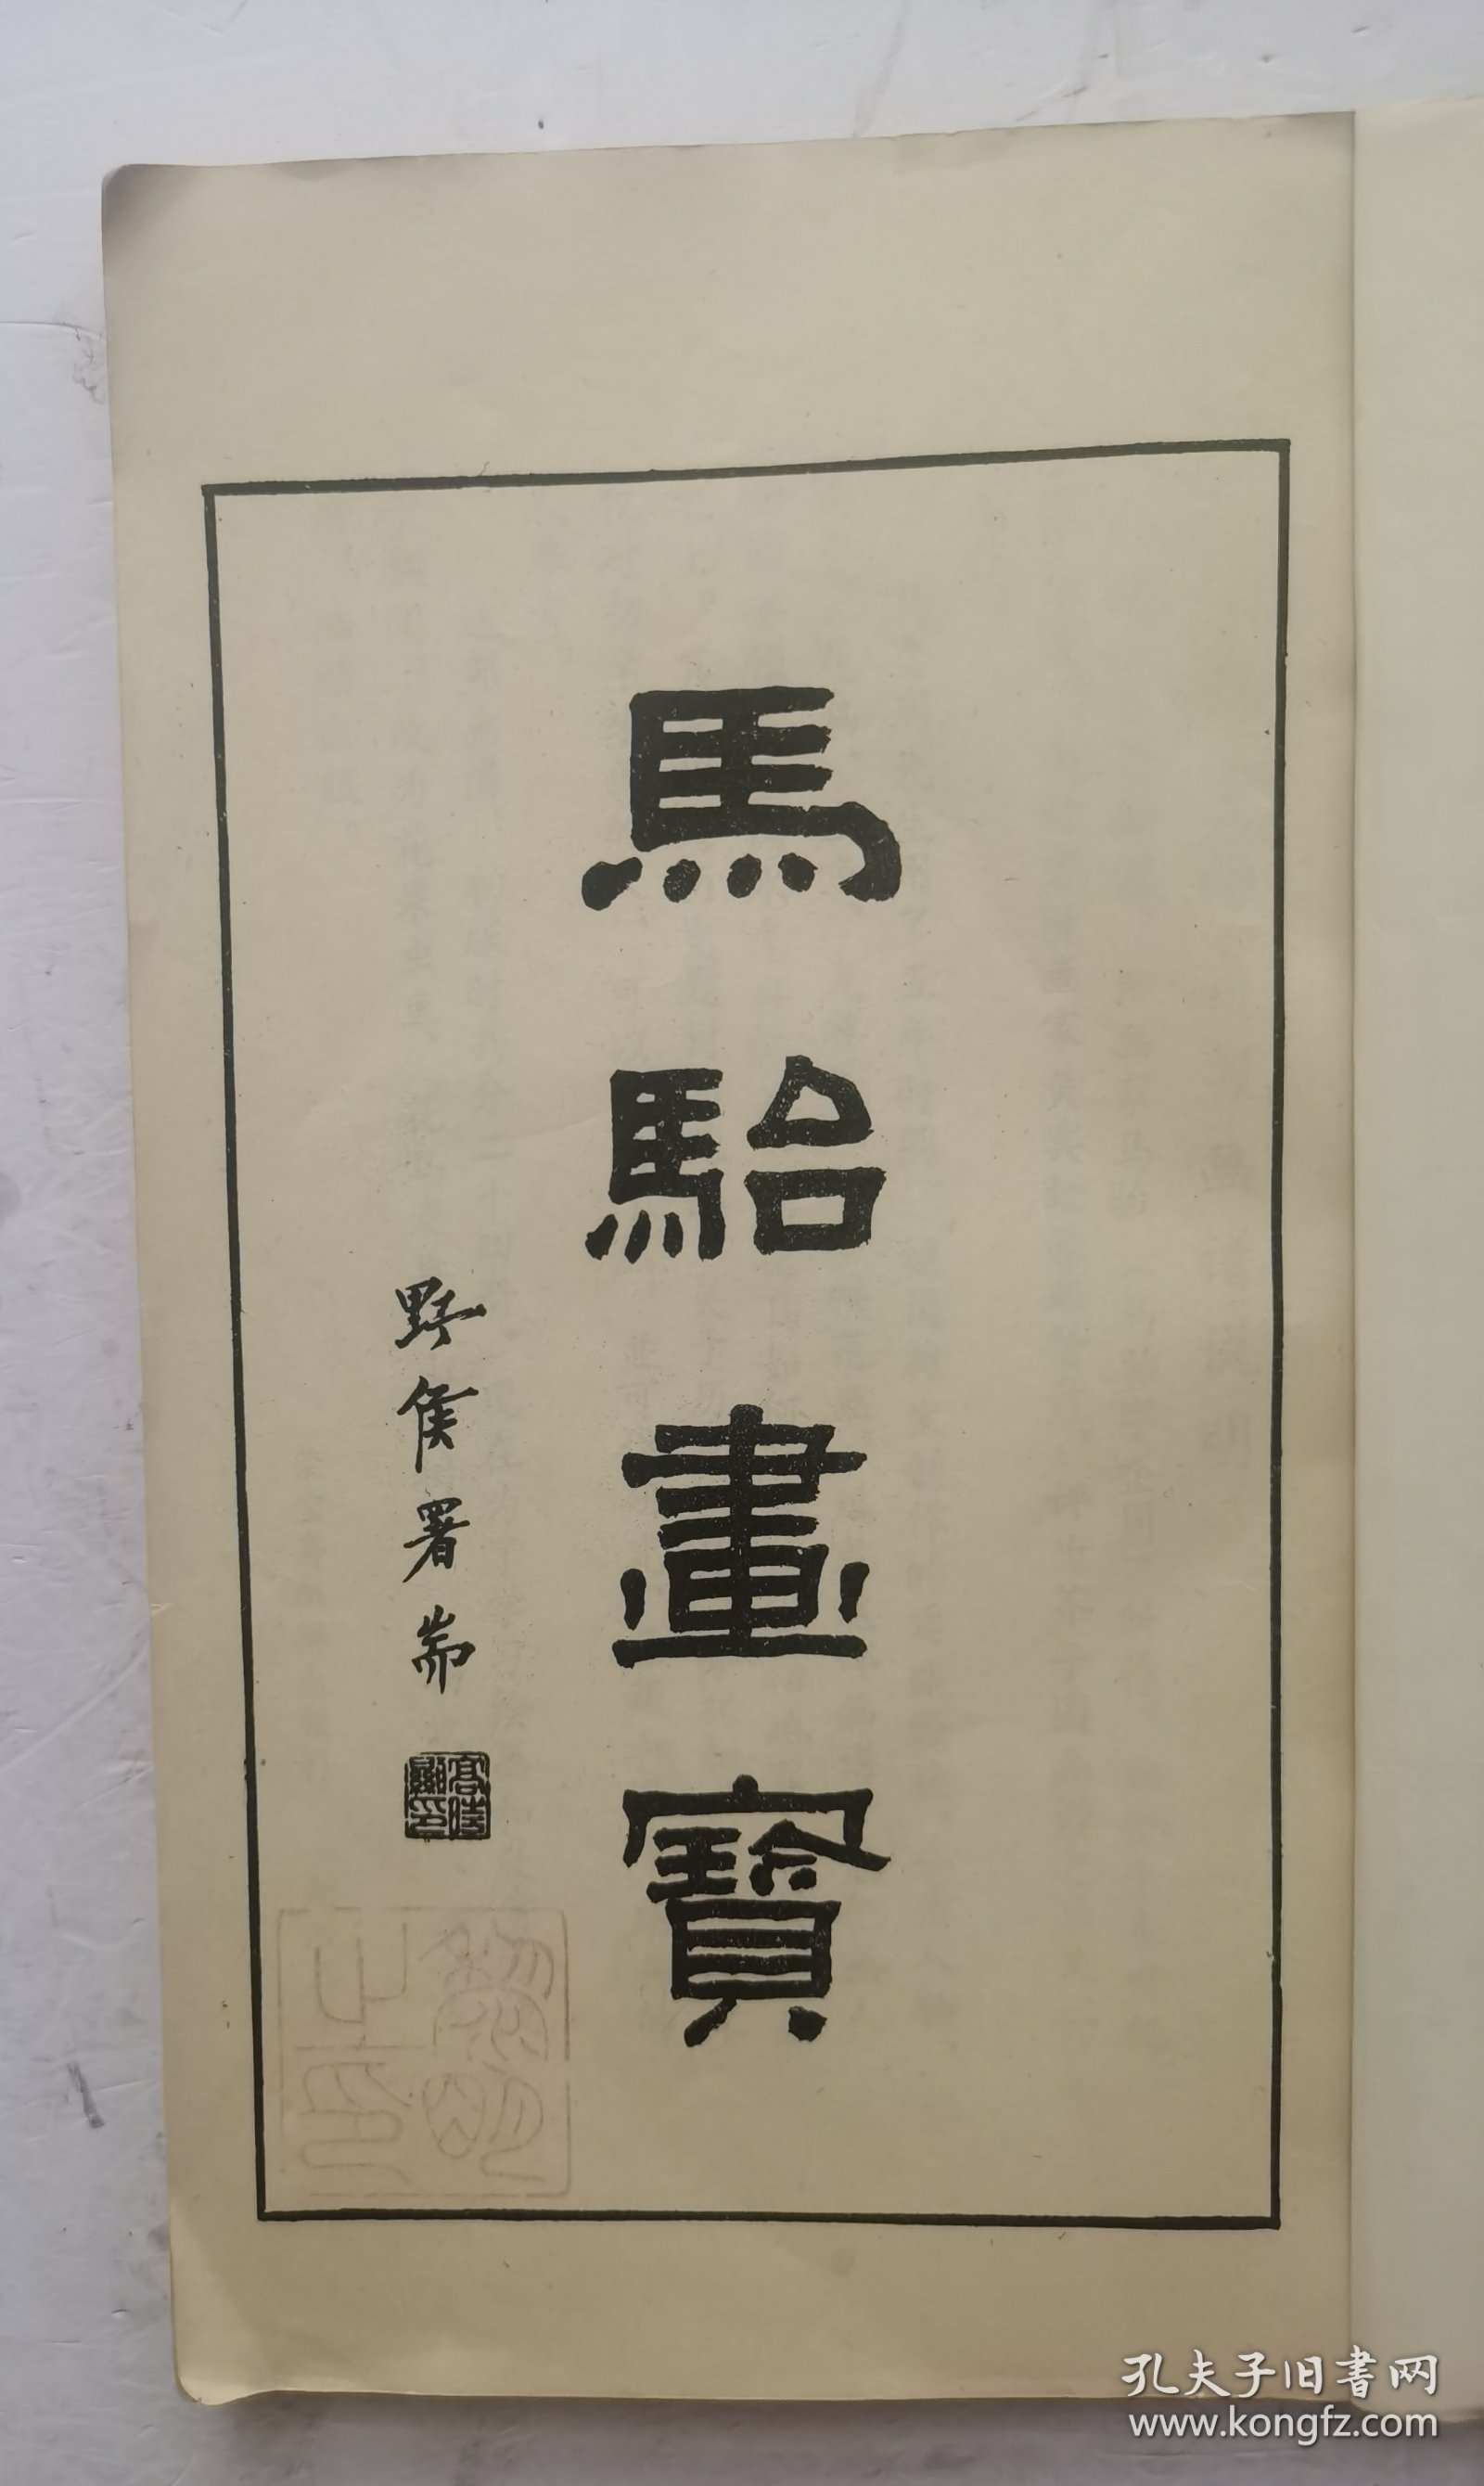 馬駘畫寶
野侯署耑
高時顯印
孔夫子旧書网
www.kongfz.com